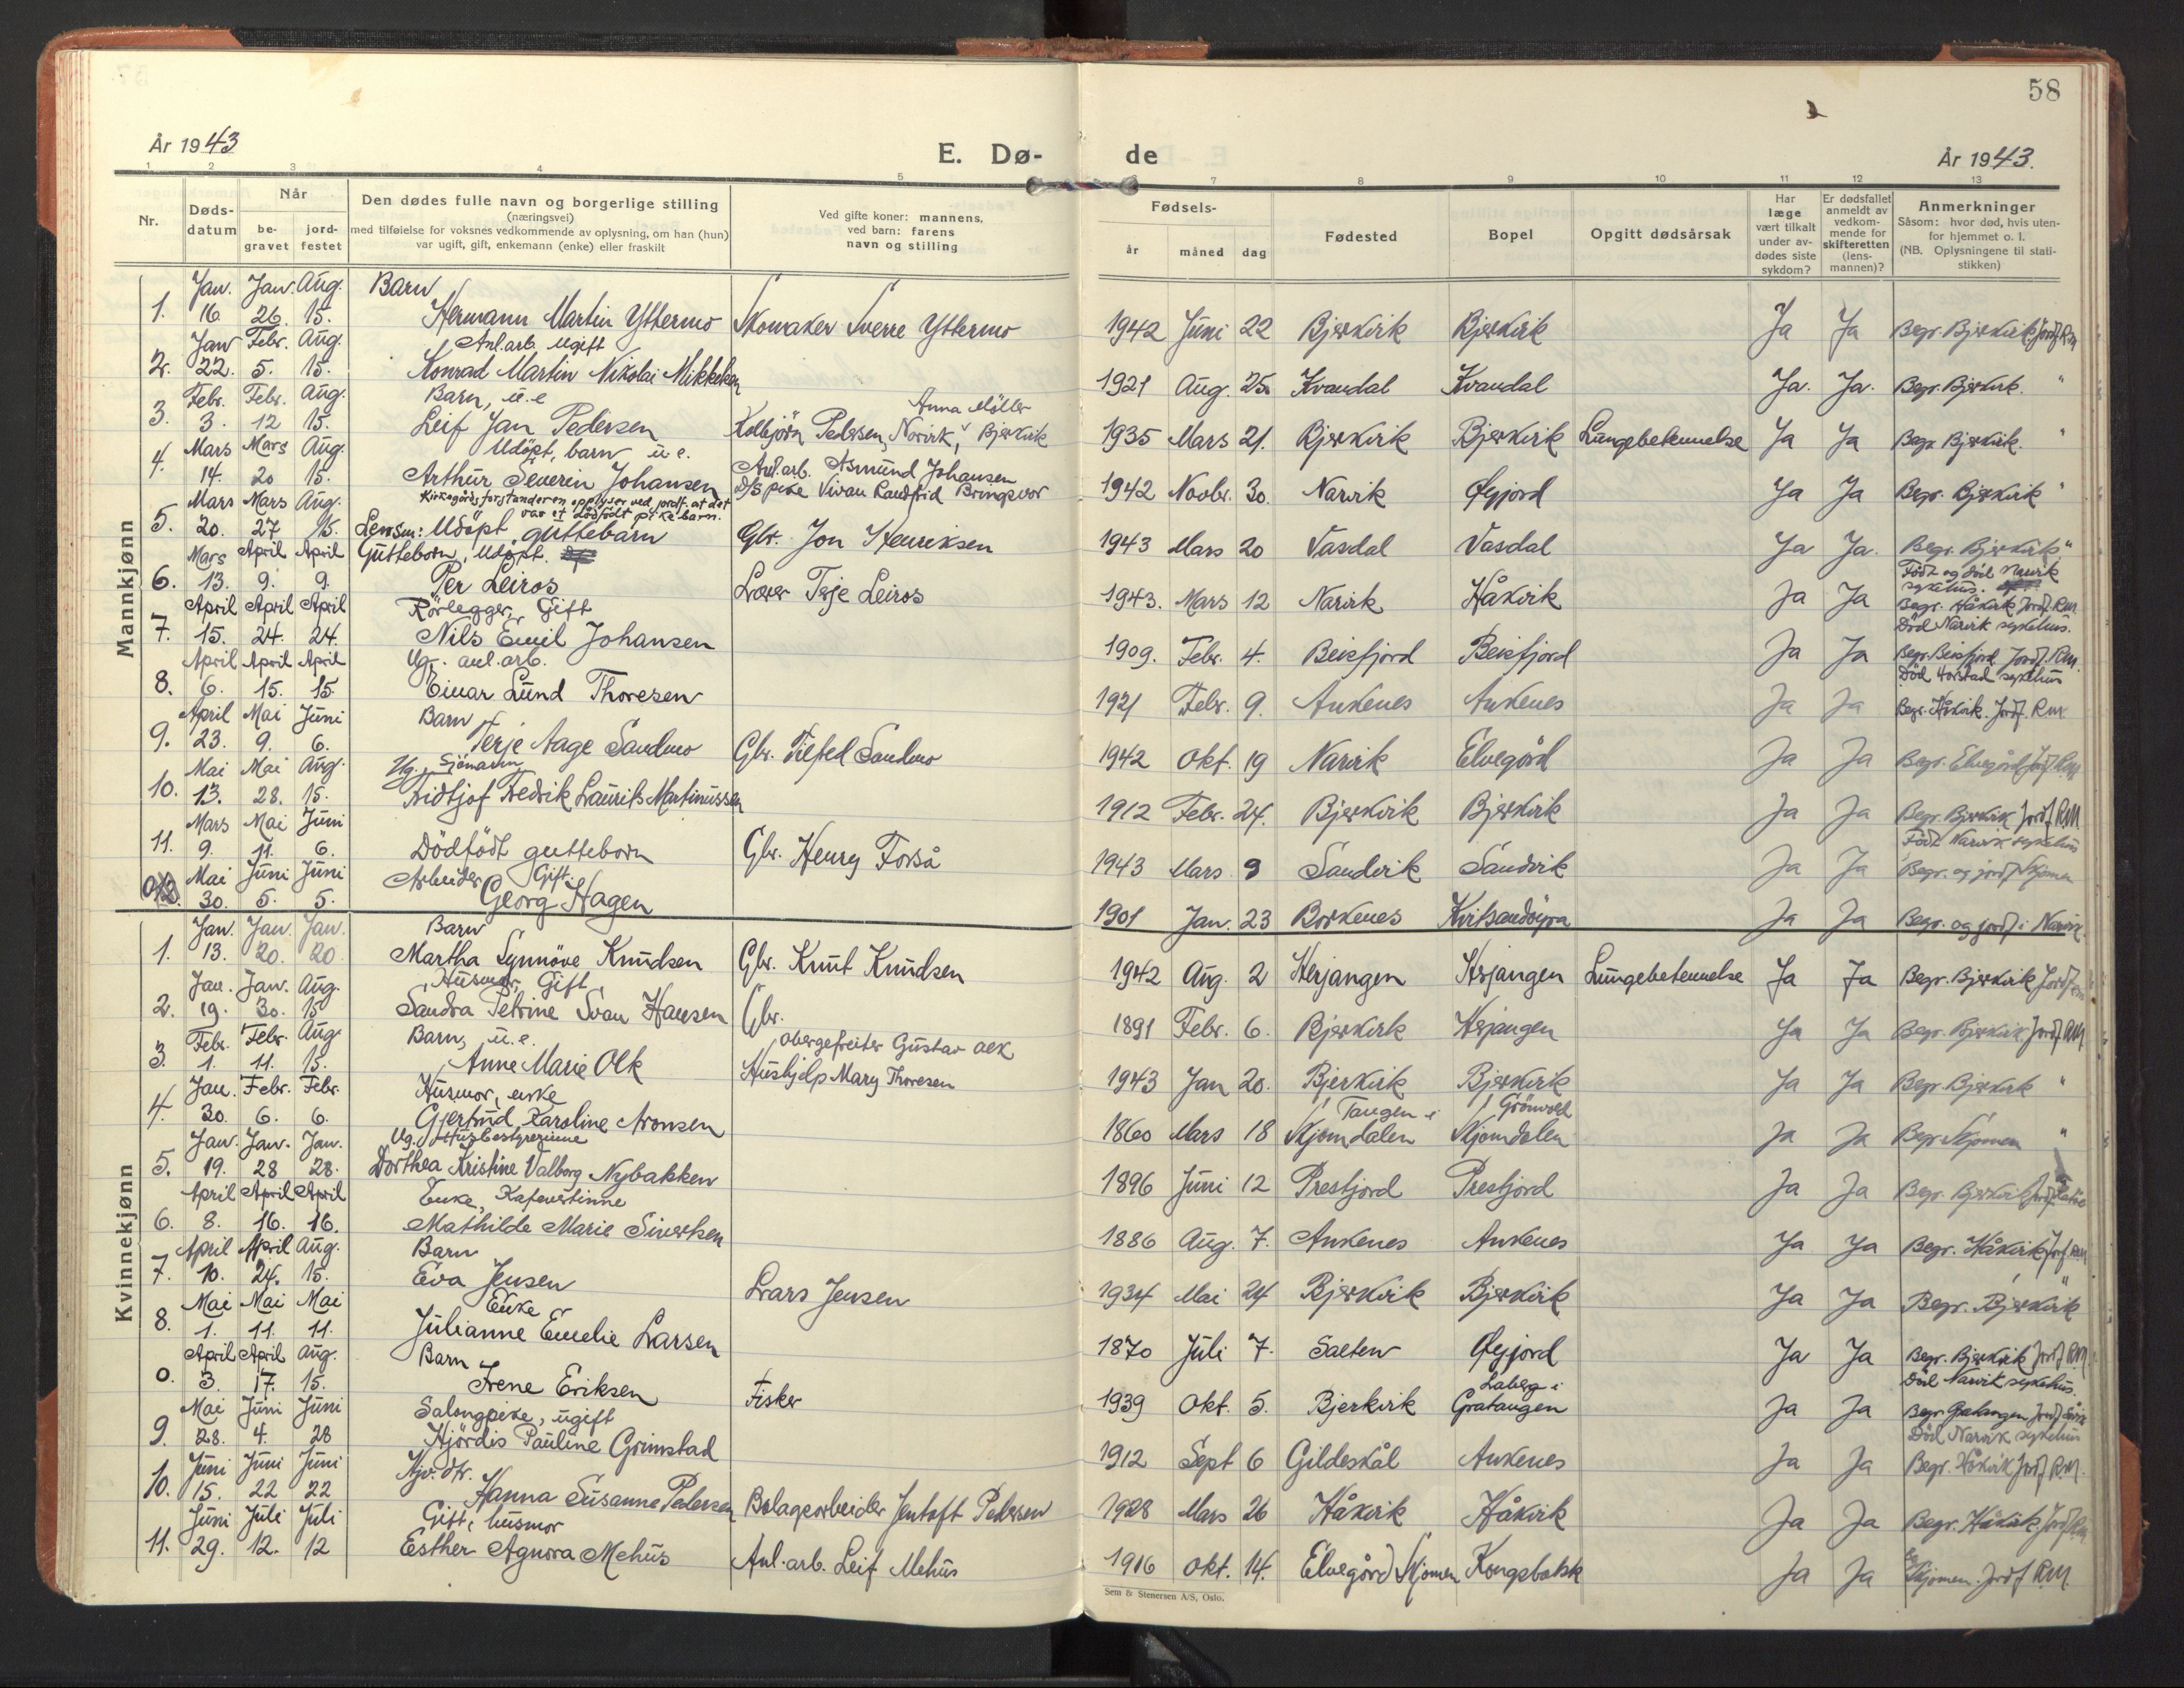 58
År 1943
E. Dø-
de
År 1943.
1 2 3 4 5 6 7 8 9 10 11 12 13
Nr.
Døds-
datum
Når
be-
gravet
jord-
festet
Den dødes fulle navn og borgerlige stilling
(næringsvei)
med tilføielse for voksnes vedkommende av oplysning, om han (hun)
var ugift, gift, enkemann (enke) eller fraskilt
Ved gifte koner: mannens,
ved barn: farens
navn og stilling
Fødsels-
år måned dag
Fødested
Bopel
Opgitt dødsårsak
Har
læge
vært tilkalt
under av-
dødes siste
sykdom?
Er dødsfallet
anmeldt av
vedkom-
mende for
skifteretten
(lens-
mannen)?
Anmerkninger
Såsom: hvor død, hvis uten-
for hjemmet o. l.
(NB. Oplysningene til stati-
stikken)
Mannkjønn
Jan. Jan. Aug. Barn
1. 16 26. 15. Hermann Martin Yttermo Skomaker Sverre Yttermo 1942 Juni 22 Bjerkvik Bjerkvik Ja Ja Begr. Bjerkvik Jordf. R.M.
Jan Febr. Aug. Anl.arb. ugift
2. 22. 5. 15. Konrad Martin Nikolai Mikkelsen 1921 Aug. 25. Kvandal Kvandal Ja. Ja. Begr. Bjerkvik. "
Febr. Febr. Aug. Barn, u.e Anna Møller
3. 3. 12 15. Leif Jan Pedersen Kolbjörn Pedersen, Narvik, Bjerkvik 1935 Mars 21. Bjerkvik Bjerkvik Lungebetennelse Ja Ja Begr. Bjerkvik. "
Mars Mars Aug. Udöpt, barn u.e. Anl.arb. Asmund Johansen
4. 14. 20 15. Arthur Severin Johansen Vivan Randfrid Bringsvor 1942 Novbr. 30. Narvik Øyjord Ja Ja Begr. Bjerkvik "
Kirkegårdsforstanderen opplyser ved jordf. at det
var et dödfödt pikebarn.
Mars Mars Aug.
5. 20. 27 15. Lensm: Udöpt guttebarn Gbr. Jon Henriksen 1943 Mars 20 Vasdal Vasdal Ja Ja. Begr. Bjerkvik "
Mars April April Guttebarn, udöpt. Födt og död Narvik
sykehus.
6. 13. 9. 9. Per Leiros Lærer Terje Leiros 1943. Mars 12 Narvik Håkvik Ja Ja Begr. Håkvik Jordf. R.M.
April April April Rörlegger, Gift Död Narvik sykehus.
7. 15. 24. 24. Nils Emil Johansen 1909. Febr. 4. Beisfjord Beisfjord Ja Ja Begr. Beisfjord Jordf. R.M.
April April April Ug. anl.arb. Död Harstad sykehus
8. 6. 15. 15. Einar Lund Thoresen 1921 Febr. 9. Ankenes Ankenes Ja Ja Begr. Håkvik. Jordf. R.M.
April Mai Juni Barn
9. 23. 9. 6. Terje Aage Sandmo Gbr. Sandmo 1942 Okt. 19 Narvik Elvegård Ja Ja Begr. Elvegård Jordf. R.M.
Mai Mai Aug. Ug. Sjömann
10. 13. 28. 15. Fridtjof Fredrik Laurits Martinussen 1912 Febr. 24. Bjerkvik Bjerkvik Ja Ja Begr. Bjerkvik Jordf. R.M.
Mars Mai Juni Födt Narvik sykehus
11. 9. 11. 6. Dödfödt guttebarn Gbr. Henry Forså 1943 Mars 9 Sandvik Sandvik Ja Ja Begr. og jordf. Skjomen
Mai Juni Juni Arbeider Gift.
30. 5. 5. Georg Hagen 1901 Jan. 23 Borkenes Kvitsandöyra Ja Ja Begr. og jordf. i Narvik.
Kvinnekjønn
Jan. Jan. Jan. Barn
1. 13. 20. 20 Martha Synnöve Knudsen Gbr. Knut Knudsen 1942 Aug. 2 Herjangen Herjangen Lungebetennelse Ja Ja Begr. Bjerkvik Jordf.
Jan. Jan. Aug. Husmor, Gift
2. 19. 30. 15 Sandra Petrine Svan Hansen Gbr. 1891 Febr. 6. Bjerkvik Herjangen Ja Ja Begr. Bjerkvik Jordf. R.M.
Febr. Febr. Aug Barn, u.e. Obergefreiter Gustav Oek
3. 1. 11. 15. Anne Marie Olk Hushjelp Mary Thoresen 1943 Jan 20. Bjerkvik Bjerkvik Ja Ja Begr. Bjerkvik "
Jan. Febr. Febr. Husmor, enke Tangen i Grönvold
4. 30. 6. 6. Gjertrud Karoline Aronsen 1860 Mars 18 Skjomdalen Skjomdalen Ja Ja Begr. Skjomen "
Jan. Jan. Jan. Ug. Husbestyrerinne
5. 19. 28 28. Dorthea Kristine Valborg Nybakken 1896 Juni 12 Prestjord Prestjord Ja Ja Begr. Bjerkvik Jordf.
April April April Enke, Kafevertinne
6. 8. 16. 16. Mathilde Marie Sivertsen 1886 Aug. 7. Ankenes Ankenes Ja Ja Begr. Håkvik Jordf. R.M.
April April Aug. Barn
7. 10. 24. 15. Eva Jensen Lars Jensen 1934 Mai 24 Bjerkvik Bjerkvik Ja Ja Begr. Bjerkvik "
Mai Mai Mai Enke
8. 1. 11. 11. Julianne Emelie Larsen 1870 Juli 7. Salten Øyjord Ja Ja Begr. Bjerkvik Jordf. R.M.
April April Aug. Barn Laberg i Död Narvik sykehus.
0. 3. 17. 15. Irene Eriksen Fisker 1939 Okt. 5. Bjerkvik Gratangen Ja Ja Begr. Gratangen Jordf.
Mai Juni Juni Salongpike, ugift Död Narvik sykehus
9. 28. 4. 28 Hjördis Pauline Grimstad 1912 Sept 6 Gildeskål Ankenes Ja Ja Begr. Håkvik Jordf. R.M.
Juni Juni Juni
10. 15. 22 22 Hanna Susanne Pedersen Bolagsarbeider Jentoft Pedersen 1928 Mars 26 Håkvik Håkvik Ja Ja Begr. Håkvik. Jordf. R.M.
Juni Juli Juli Gift, husmor
11. 29. 12. 12 Esther Agnora Mehus Anl.arb. Leif Mehus 1916 Okt. 14. Elvegård Skjomen Kongsbakk Ja Ja Skjomen. Jordf R.M.
Sem & Stenersen A/S, Oslo.